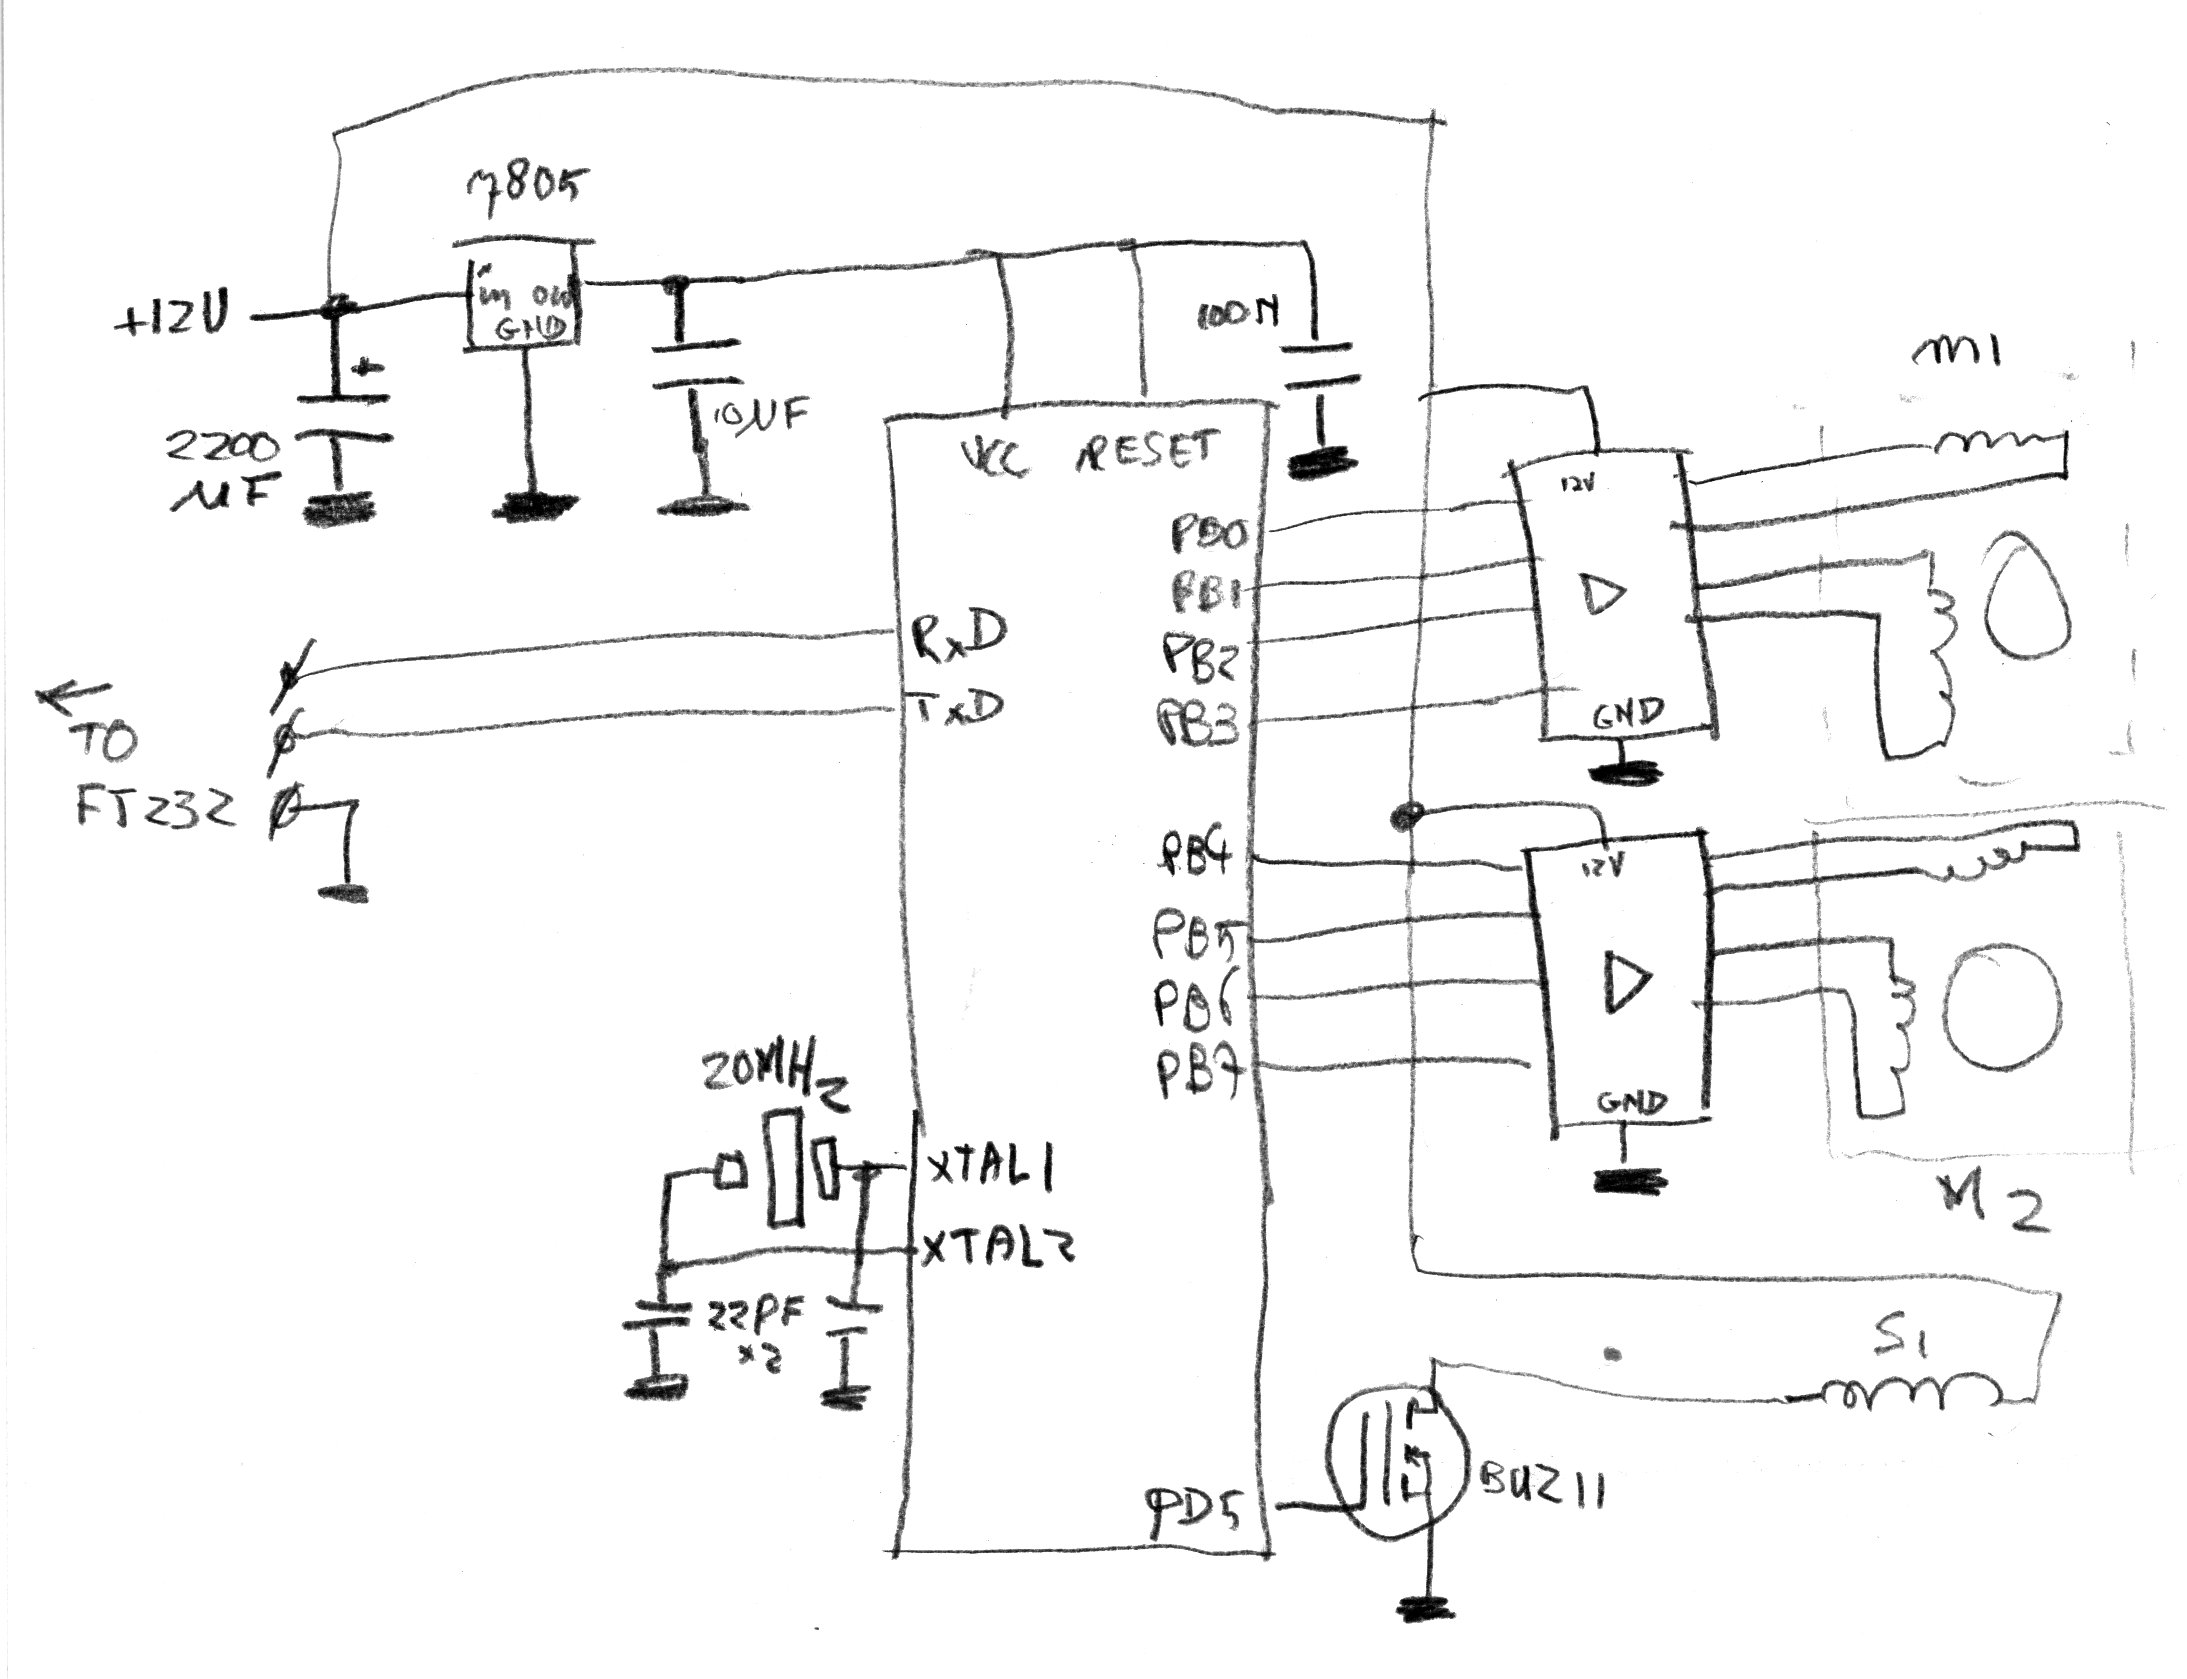 7805
+12V
in out
GND
+
2200
µF
10µF
100N
VCC RESET
M1
12V
PB0
PB1
PB2
PB3
GND
RxD
TxD
←
TO
FT232
PB4
12V
PB5
PB6
PB7
GND
M2
20MHz
XTAL1
XTAL2
22PF
x2
S1
PD5
BUZ11